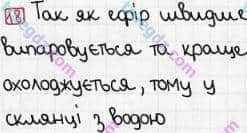 18) Так як ефір швидше
випаровується та краще
охолоджується, тому у
склянці з водою